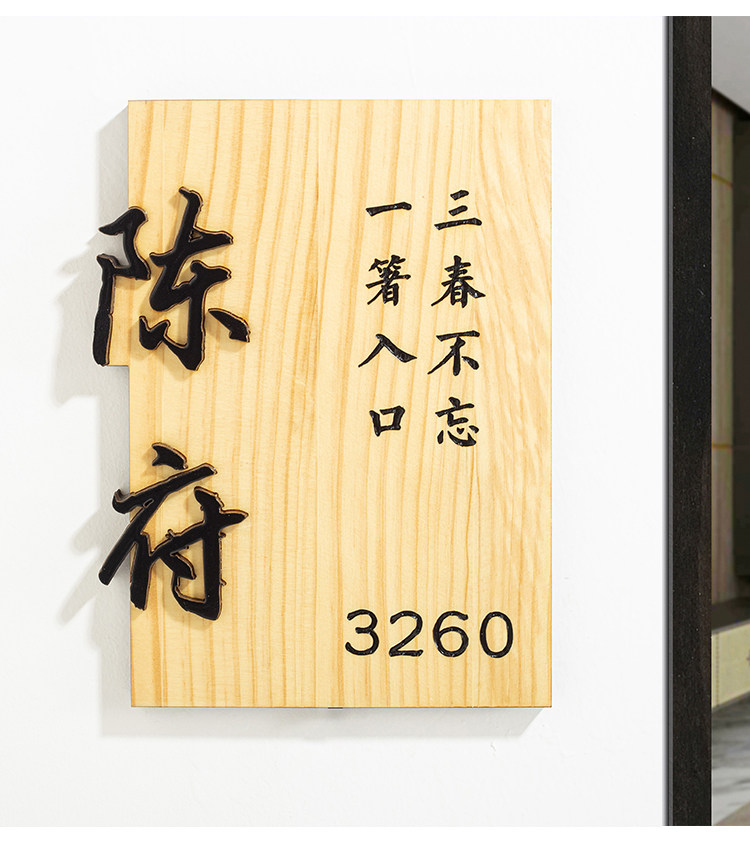 陈府
三春不忘
一箸入口
3260